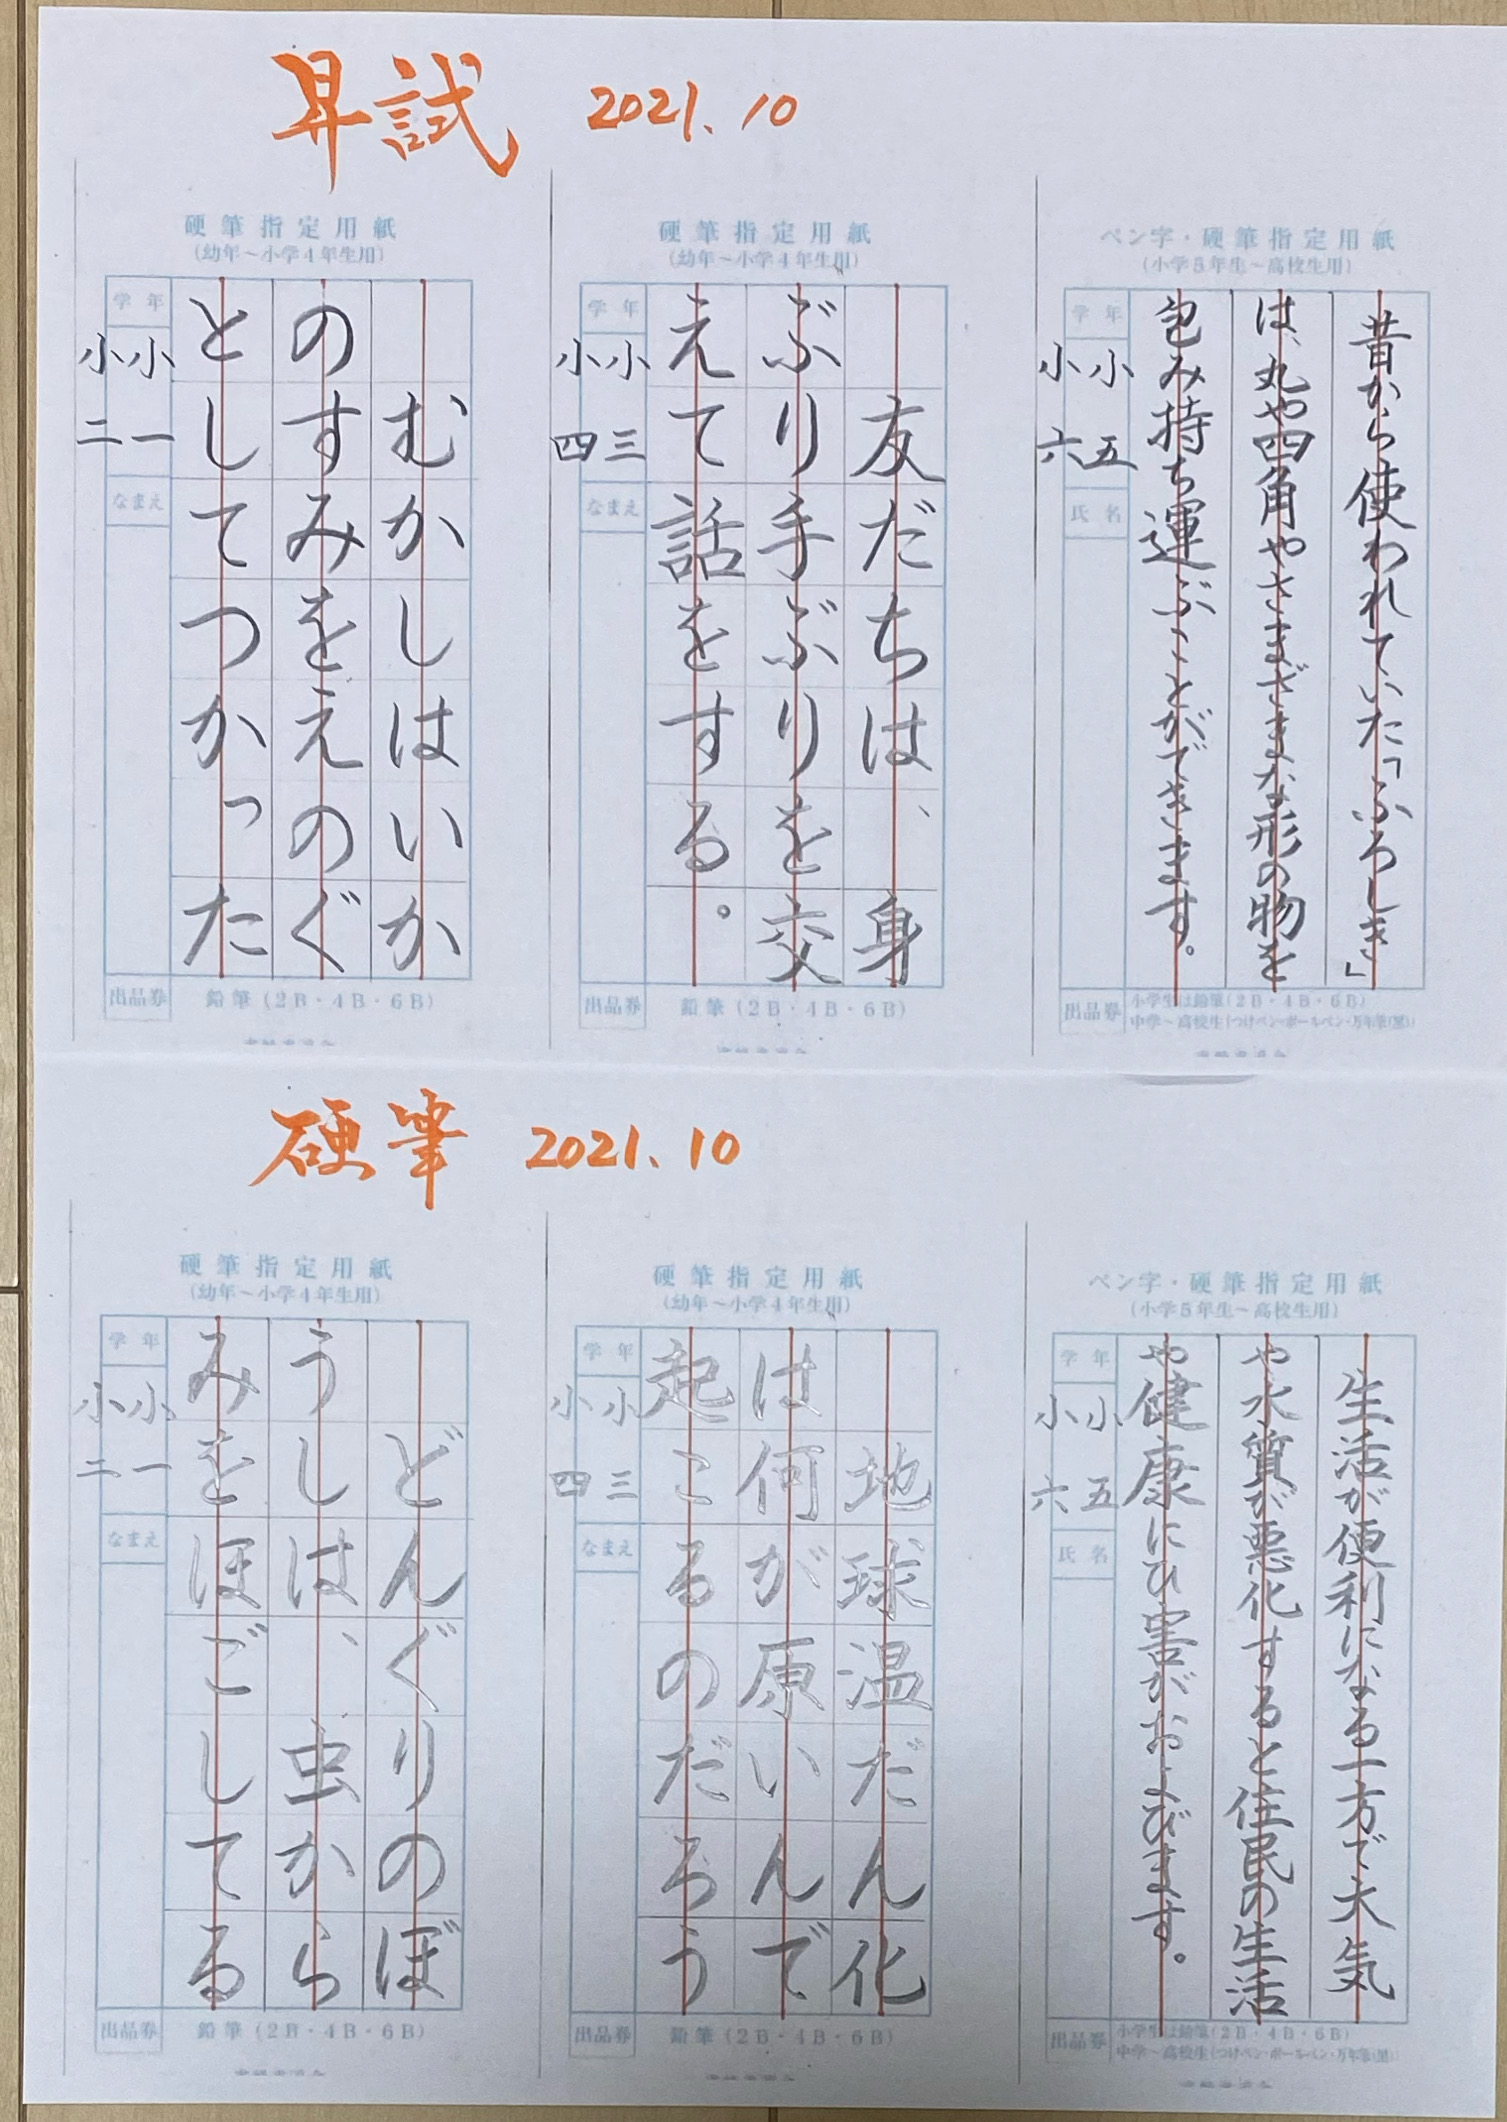 昇試 2021.10
硬筆指定用紙
(幼年～小学4年生用)
学年
小一
小二
なまえ
むかしはいか
のすみをえのぐ
としてつかった
出品券
鉛筆(2B・4B・6B)
硬筆指定用紙
(幼年～小学4年生用)
学年
小三
小四
なまえ
友だちは、身
ぶり手ぶりを交
えて話をする。
出品券
鉛筆(2B・4B・6B)
ペン字・硬筆指定用紙
(小学5年生～高校生用)
学年
小五
小六
氏名
昔から使われていた「ふろしき」
は、丸や四角やさまざまな形の物を
包み持ち運ぶことができます。
出品券
小学生は鉛筆(2B・4B・6B)
中学～高校生(つけペン・ボールペン・万年筆(黒))
硬筆 2021.10
硬筆指定用紙
(幼年～小学4年生用)
学年
小一
小二
なまえ
どんぐりのぼ
うしは、虫から
みをほごしてる
出品券
鉛筆(2B・4B・6B)
硬筆指定用紙
(幼年～小学4年生用)
学年
小三
小四
なまえ
地球温だん化
は何が原いんで
起こるのだろう
出品券
鉛筆(2B・4B・6B)
ペン字・硬筆指定用紙
(小学5年生～高校生用)
学年
小五
小六
氏名
生活が便利になる一方で大気
や水質が悪化すると住民の生活
や健康にひ害がおよびます。
出品券
小学生は鉛筆(2B・4B・6B)
中学～高校生(つけペン・ボールペン・万年筆(黒))